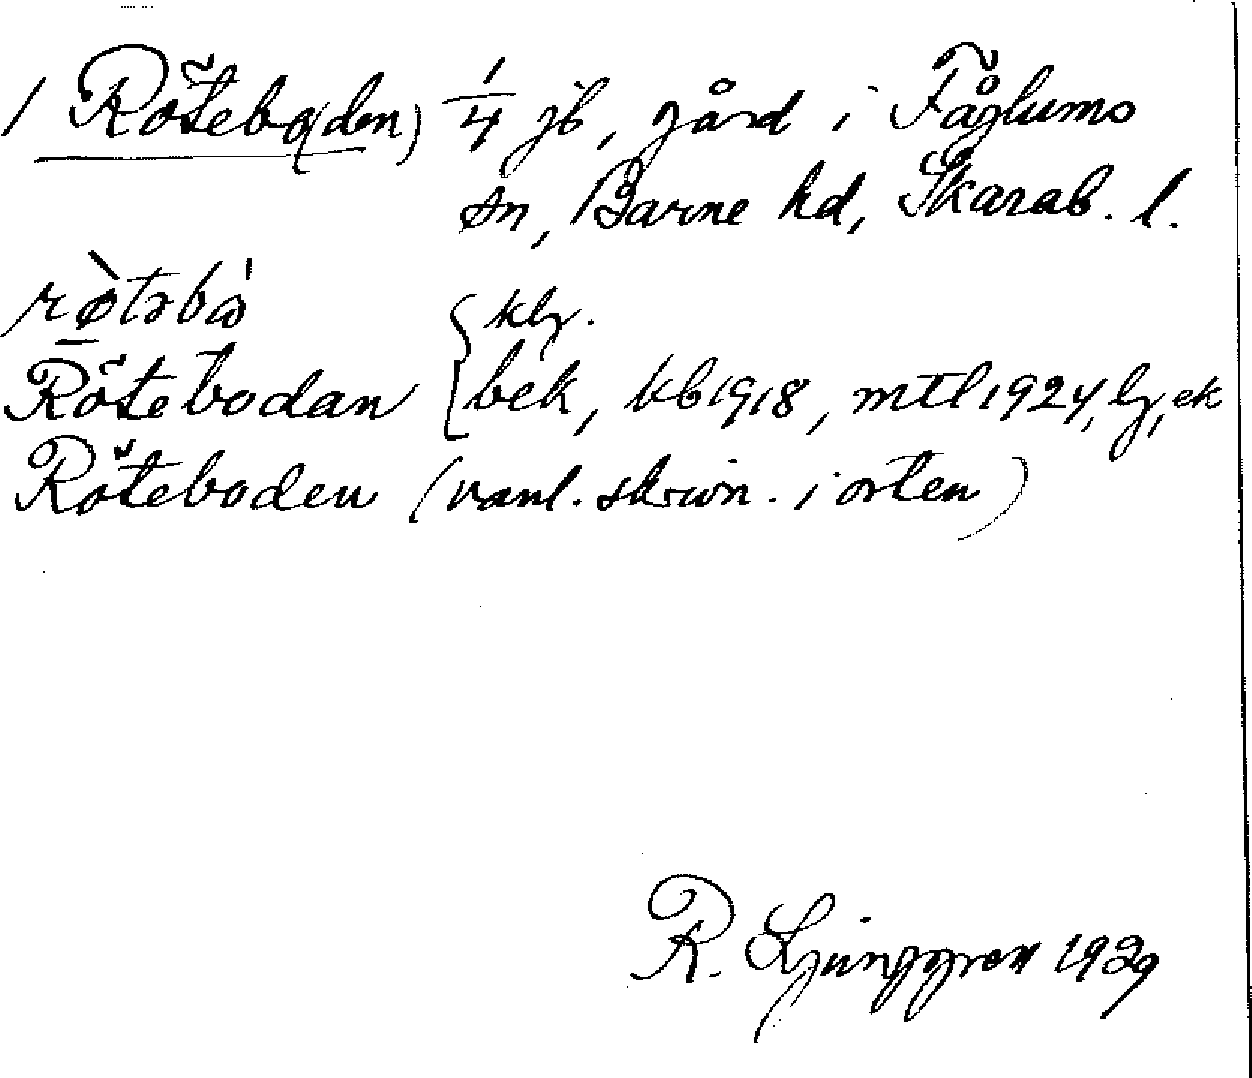 1 Rötebo(den) 1/4 jb, gård i Fåglums
sn, Barne hd, Skarab. l.
rø̀təbὼ
Rötebodan { klg.
[ bek, kb 1918, mtl 1924, lg, ek
Röteboden (vanl. skrivn. i orten)
R. Ljunggren 1929